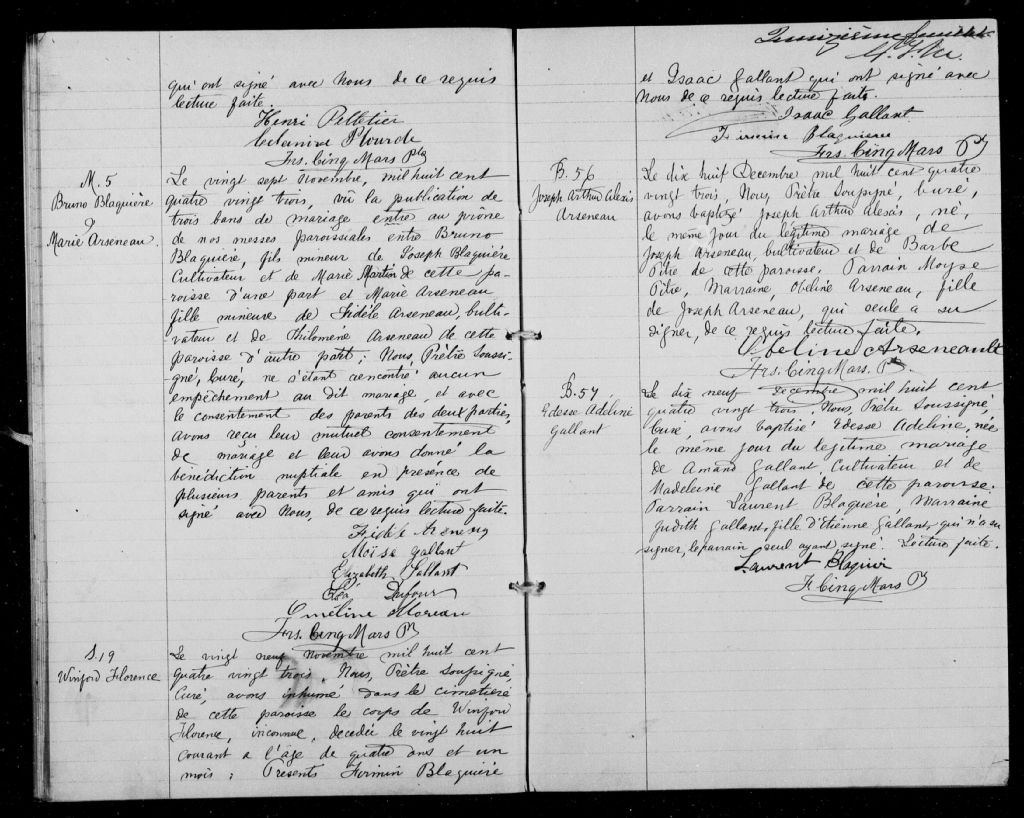 qui ont signé avec Nous de ce requis
lecture faite.
Henri Pelletier
Plourde
Frs. Cinq Mars Ptr
M. 5
Bruno Blaquière
&
Marie Arseneau.
Le vingt sept Novembre, mil huit cent
quatre vingt trois, vû la publication de
trois bans de mariage entre au prône
de nos messes paroissiales entre Bruno
Blaquière, fils mineur de Joseph Blaquière
Cultivateur et de Marie Martin de cette pa-
roisse d'une part et Marie Arseneau
fille mineure de Fidèle Arseneau, culti-
vateur et de Philomène Arseneau de cette
paroisse d'autre part; Nous, Prêtre Soussi-
gné, Curé, ne s'étant rencontré aucun
empêchement au dit mariage, et avec
le consentement des parents des deux parties,
avons reçu leur mutuel consentement
de mariage et leur avons donné la
bénédiction nuptiale en présence de
plusieurs parents et amis qui ont
signé avec Nous, de ce requis lecture faite.
Fidèle Arseneau
Moïse Gallant
Elizabeth Gallant
Dufour
Emeline Moreau
Frs. Cinq Mars Ptr
S. 19
Winford Florence
Le vingt neuf Novembre mil huit cent
quatre vingt trois, Nous, Prêtre soussigné,
Curé, avons inhumé dans le cimetière
de cette paroisse le corps de Winford
Florence, inconnue, decedée le vingt huit
courant a l'âge de quatre ans et un
mois; Presents Firmin Blaquière
Quinzième feuillet
et Isaac Gallant qui ont signé avec
Nous de ce requis lecture faite.
Isaac Gallant
Firmin Blaquiere
Frs. Cinq Mars Ptr
B. 56
Joseph Arthur Alexis
Arseneau
Le dix huit Decembre mil huit cent quatre
vingt trois, Nous, Prêtre Soussigné, Curé,
avons baptizé Joseph Arthur Alexis, né,
le même jour du légitime mariage de
Joseph Arseneau, cultivateur et de Barbe
Pitre de cette paroisse. Parrain Moyse
Pitre, Marraine, Obeline Arseneau, fille
de Joseph Arseneau, qui seule a su
signer, de ce requis lecture faite.
Obeline Arseneault
Frs. Cinq Mars. Ptr.
B. 57
Edesse Adéline
Gallant
Le dix neuf Decembre mil huit cent
quatre vingt trois, Nous, Prêtre Soussigné,
Curé, avons baptisé Edesse Adeline, née
le même jour du legitime mariage
de Amand Gallant, Cultivateur et de
Madeleine Gallant de cette paroisse.
Parrain Laurent Blaquière, Marraine
Judith Gallant, fille d'Etienne Gallant, qui n'a su
signer, le parrain seul ayant signé. Lecture faite.
Laurent Blaquier
F. Cinq Mars Ptr